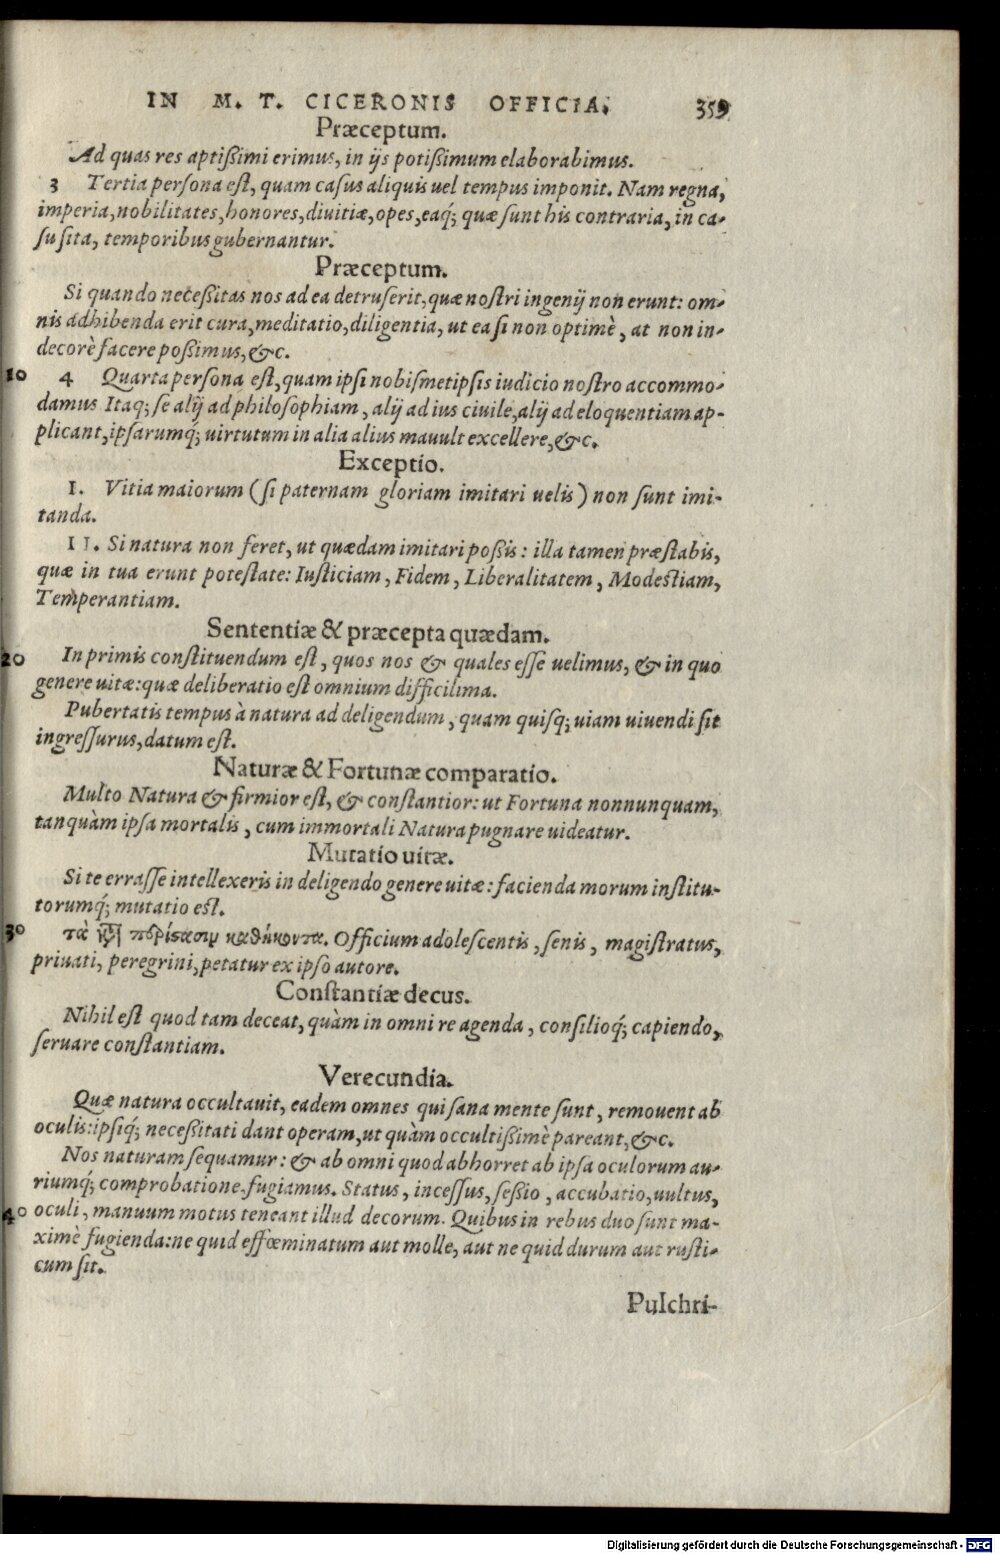 IN M. T. CICERONIS OFFICIA. 359
Præceptum.
Ad quas res aptißimi erimus, in ijs potißimum elaborabimus.
3 Tertia persona est, quam casus aliquis uel tempus imponit. Nam regna,
imperia, nobilitates, honores, diuitiæ, opes, eaq́; quæ sunt his contraria, in ca-
su sita, temporibus gubernantur.
Præceptum.
Si quando neceßitas nos ad ea detruserit, quæ nostri ingenij non erunt: om-
nis adhibenda erit cura, meditatio, diligentia, ut ea si non optimè, at non in-
decorè facere poßimus, &c.
10 4 Quarta persona est, quam ipsi nobismetipsis iudicio nostro accommo-
damus Itaq; se alij ad philosophiam, alij ad ius ciuile, alij ad eloquentiam ap-
plicant, ipsarumq́; uirtutum in alia alius mauult excellere, &c.
Exceptio.
I. Vitia maiorum (si paternam gloriam imitari uelis) non sunt imi-
tanda.
II. Si natura non feret, ut quædam imitari poßis: illa tamen præstabis,
quæ in tua erunt potestate: Iusticiam, Fidem, Liberalitatem, Modestiam,
Temperantiam.
Sententiæ & præcepta quædam.
20 In primis constituendum est, quos nos & quales esse uelimus, & in quo
genere uitæ: quæ deliberatio est omnium difficilima.
Pubertatis tempus à natura ad deligendum, quam quisq; uiam uiuendi sit
ingressurus, datum est.
Naturæ & Fortunæ comparatio.
Multo Natura & firmior est, & constantior: ut Fortuna nonnunquam,
tanquàm ipsa mortalis, cum immortali Natura pugnare uideatur.
Mutatio uitæ.
Si te errasse intellexeris in deligendo genere uitæ: facienda morum institu-
torumq́; mutatio est.
30 τὰ κỳ πϖρίστασιμ καθήκοντα. Officium adolescentis, senis, magistratus,
priuati, peregrini, petatur ex ipso autore.
Constantiæ decus.
Nihil est quod tam deceat, quàm in omni re agenda, consilioq́; capiendo,
seruare constantiam.
Verecundia.
Quæ natura occultauit, eadem omnes qui sana mente sunt, remouent ab
oculis: ipsiq́; neceßitati dant operam, ut quàm occultißimè pareant, &c.
Nos naturam sequamur: & ab omni quod abhorret ab ipsa oculorum au-
riumq́; comprobatione, fugiamus. Status, incessus, seßio, accubatio, uultus,
40 oculi, manuum motus teneant illud decorum. Quibus in rebus duo sunt ma-
ximè fugienda: ne quid effœminatum aut molle, aut ne quid durum aut rusti-
cum sit.
Pulchri-
Digitalisierung gefördert durch die Deutsche Forschungsgemeinschaft - DFG